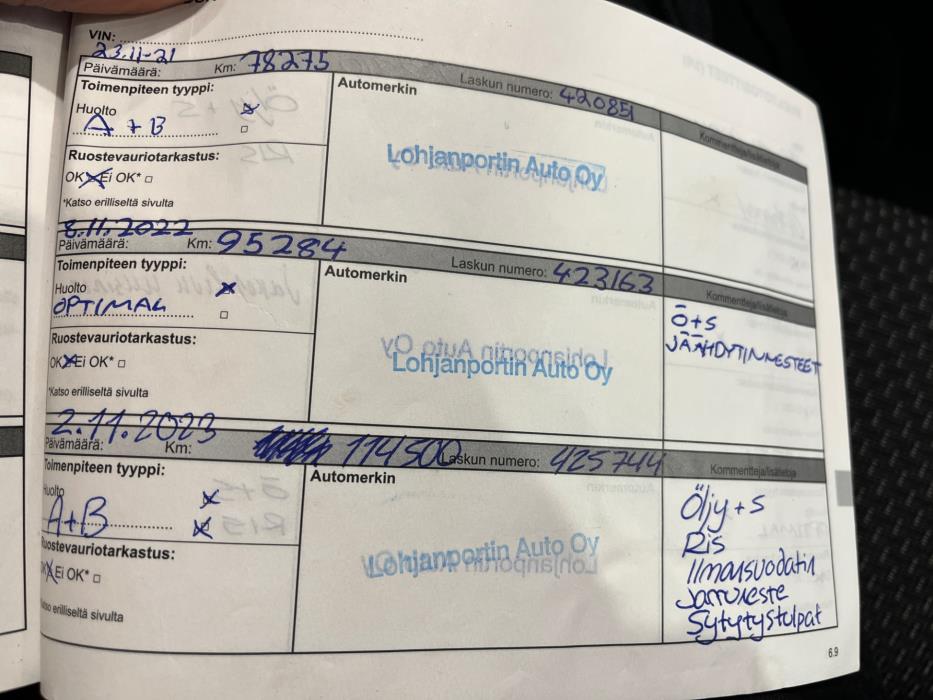 VIN:
23.11-21
Päivämäärä: Km: 78275 Laskun numero: 420851 Kommentteja/lisätietoja
Toimenpiteen tyyppi: Automerkin
Huolto
A + B
Lohjanportin Auto Oy
Ruostevauriotarkastus:
OK Ei OK*
*Katso erilliseltä sivulta
8.11.2022
Päivämäärä: Km: 95284 Laskun numero: 423163 Kommentteja/lisätietoja
Toimenpiteen tyyppi: Automerkin
Huolto
OPTIMAL
Ö+S
JÄÄHDYTINNESTEET
Lohjanportin Auto Oy
Ruostevauriotarkastus:
OK Ei OK*
*Katso erilliseltä sivulta
2.11.2023
Päivämäärä: Km: 114500 Laskun numero: 425744 Kommentteja/lisätietoja
Toimenpiteen tyyppi: Automerkin
Huolto
A+B
Öljy + S
Ris
Ilmansuodatin
Jarruneste
Sytytystulpat
Lohjanportin Auto Oy
Ruostevauriotarkastus:
OK Ei OK*
*Katso erilliseltä sivulta
6.9